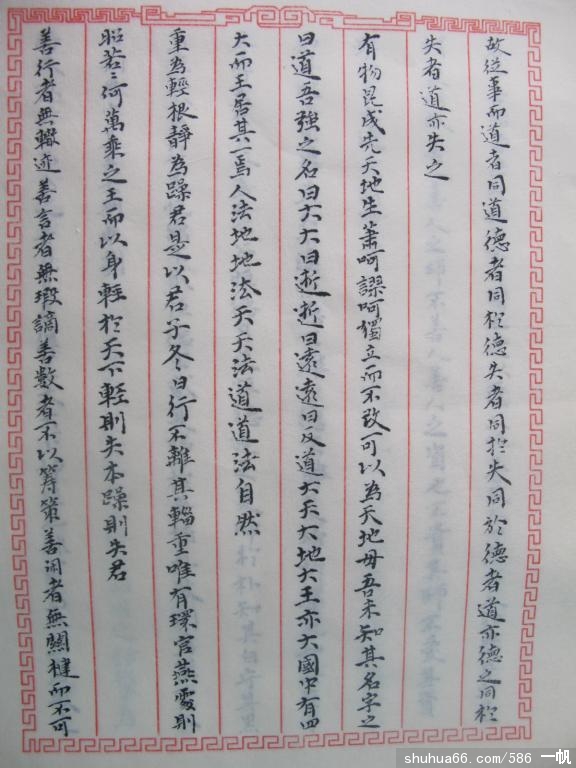 故從事而道者同道德者同於德失者同於失同於德者道亦德之同於
失者道亦失之
有物昆成先天地生蕭呵謬呵獨立而不改可以為天地母吾未知其名字之
曰道吾強之名曰大大曰逝逝曰遠遠曰反道大天大地大王亦大國中有四
大而王居其一焉人法地地法天天法道道法自然
重為輕根靜為躁君是以君子冬日行不離其輜重唯有環官燕處則
昭若⺀何萬乘之王而以身輕於天下輕則失本躁則失君
善行者無轍迹善言者無瑕謫善數者不以籌策善閉者無關楗而不可
shuhua66.com/586 一帆